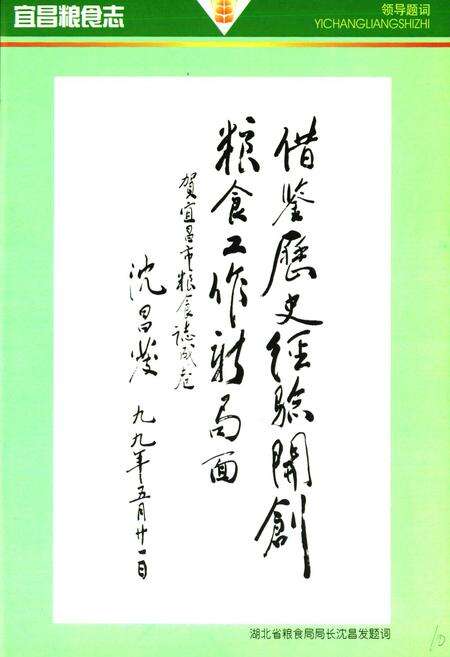 宜昌粮食志
领导题词
YICHANGLIANGSHIZHI
借鉴歷史经驗開創
粮食工作新局面
贺宜昌市粮食誌成卷
沈昌发
九九年五月廿一日
湖北省粮食局局长沈昌发题词
10